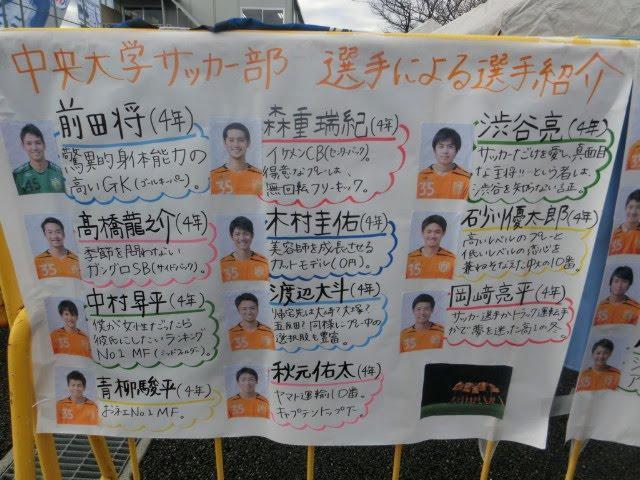 中央大学サッカー部 選手による選手紹介
前田将(4年)
驚異的身体能力の
高いGK(ゴールキーパー)
森重瑞紀(4年)
イケメンCB(センターバック)。
得意なプレーは、
無回転フリーキック。
渋谷亮(4年)
サッカーだけを愛し、真面目
な主将!…という名は
渋谷を知らない証。
髙橋龍之介(4年)
季節を問わない
ガングロSB(サイドバック)。
木村圭佑(4年)
美容師を成長させる
カットモデル(0円)。
石川優太郎(4年)
高いレベルのプレーと
低いレベルの恋心を
兼ねそなえた、中大の10番。
中村昇平(4年)
僕が女性だったら
彼氏にしたいランキング
No.1 MF(ミッドフィルダー)。
渡辺大斗(4年)
帰宅先は大崎?大塚?
五反田?同様にプレー中の
選択肢も豊富。
岡崎亮平(4年)
サッカー選手かトラック運転手
かで夢を迷った高1の冬。
青柳駿平(4年)
お洒落No.1 MF。
秋元佑太(4年)
ヤマト運輸10番。
キャプテントップ下。
45
35
35
35
35
35
35
35
35
35
35